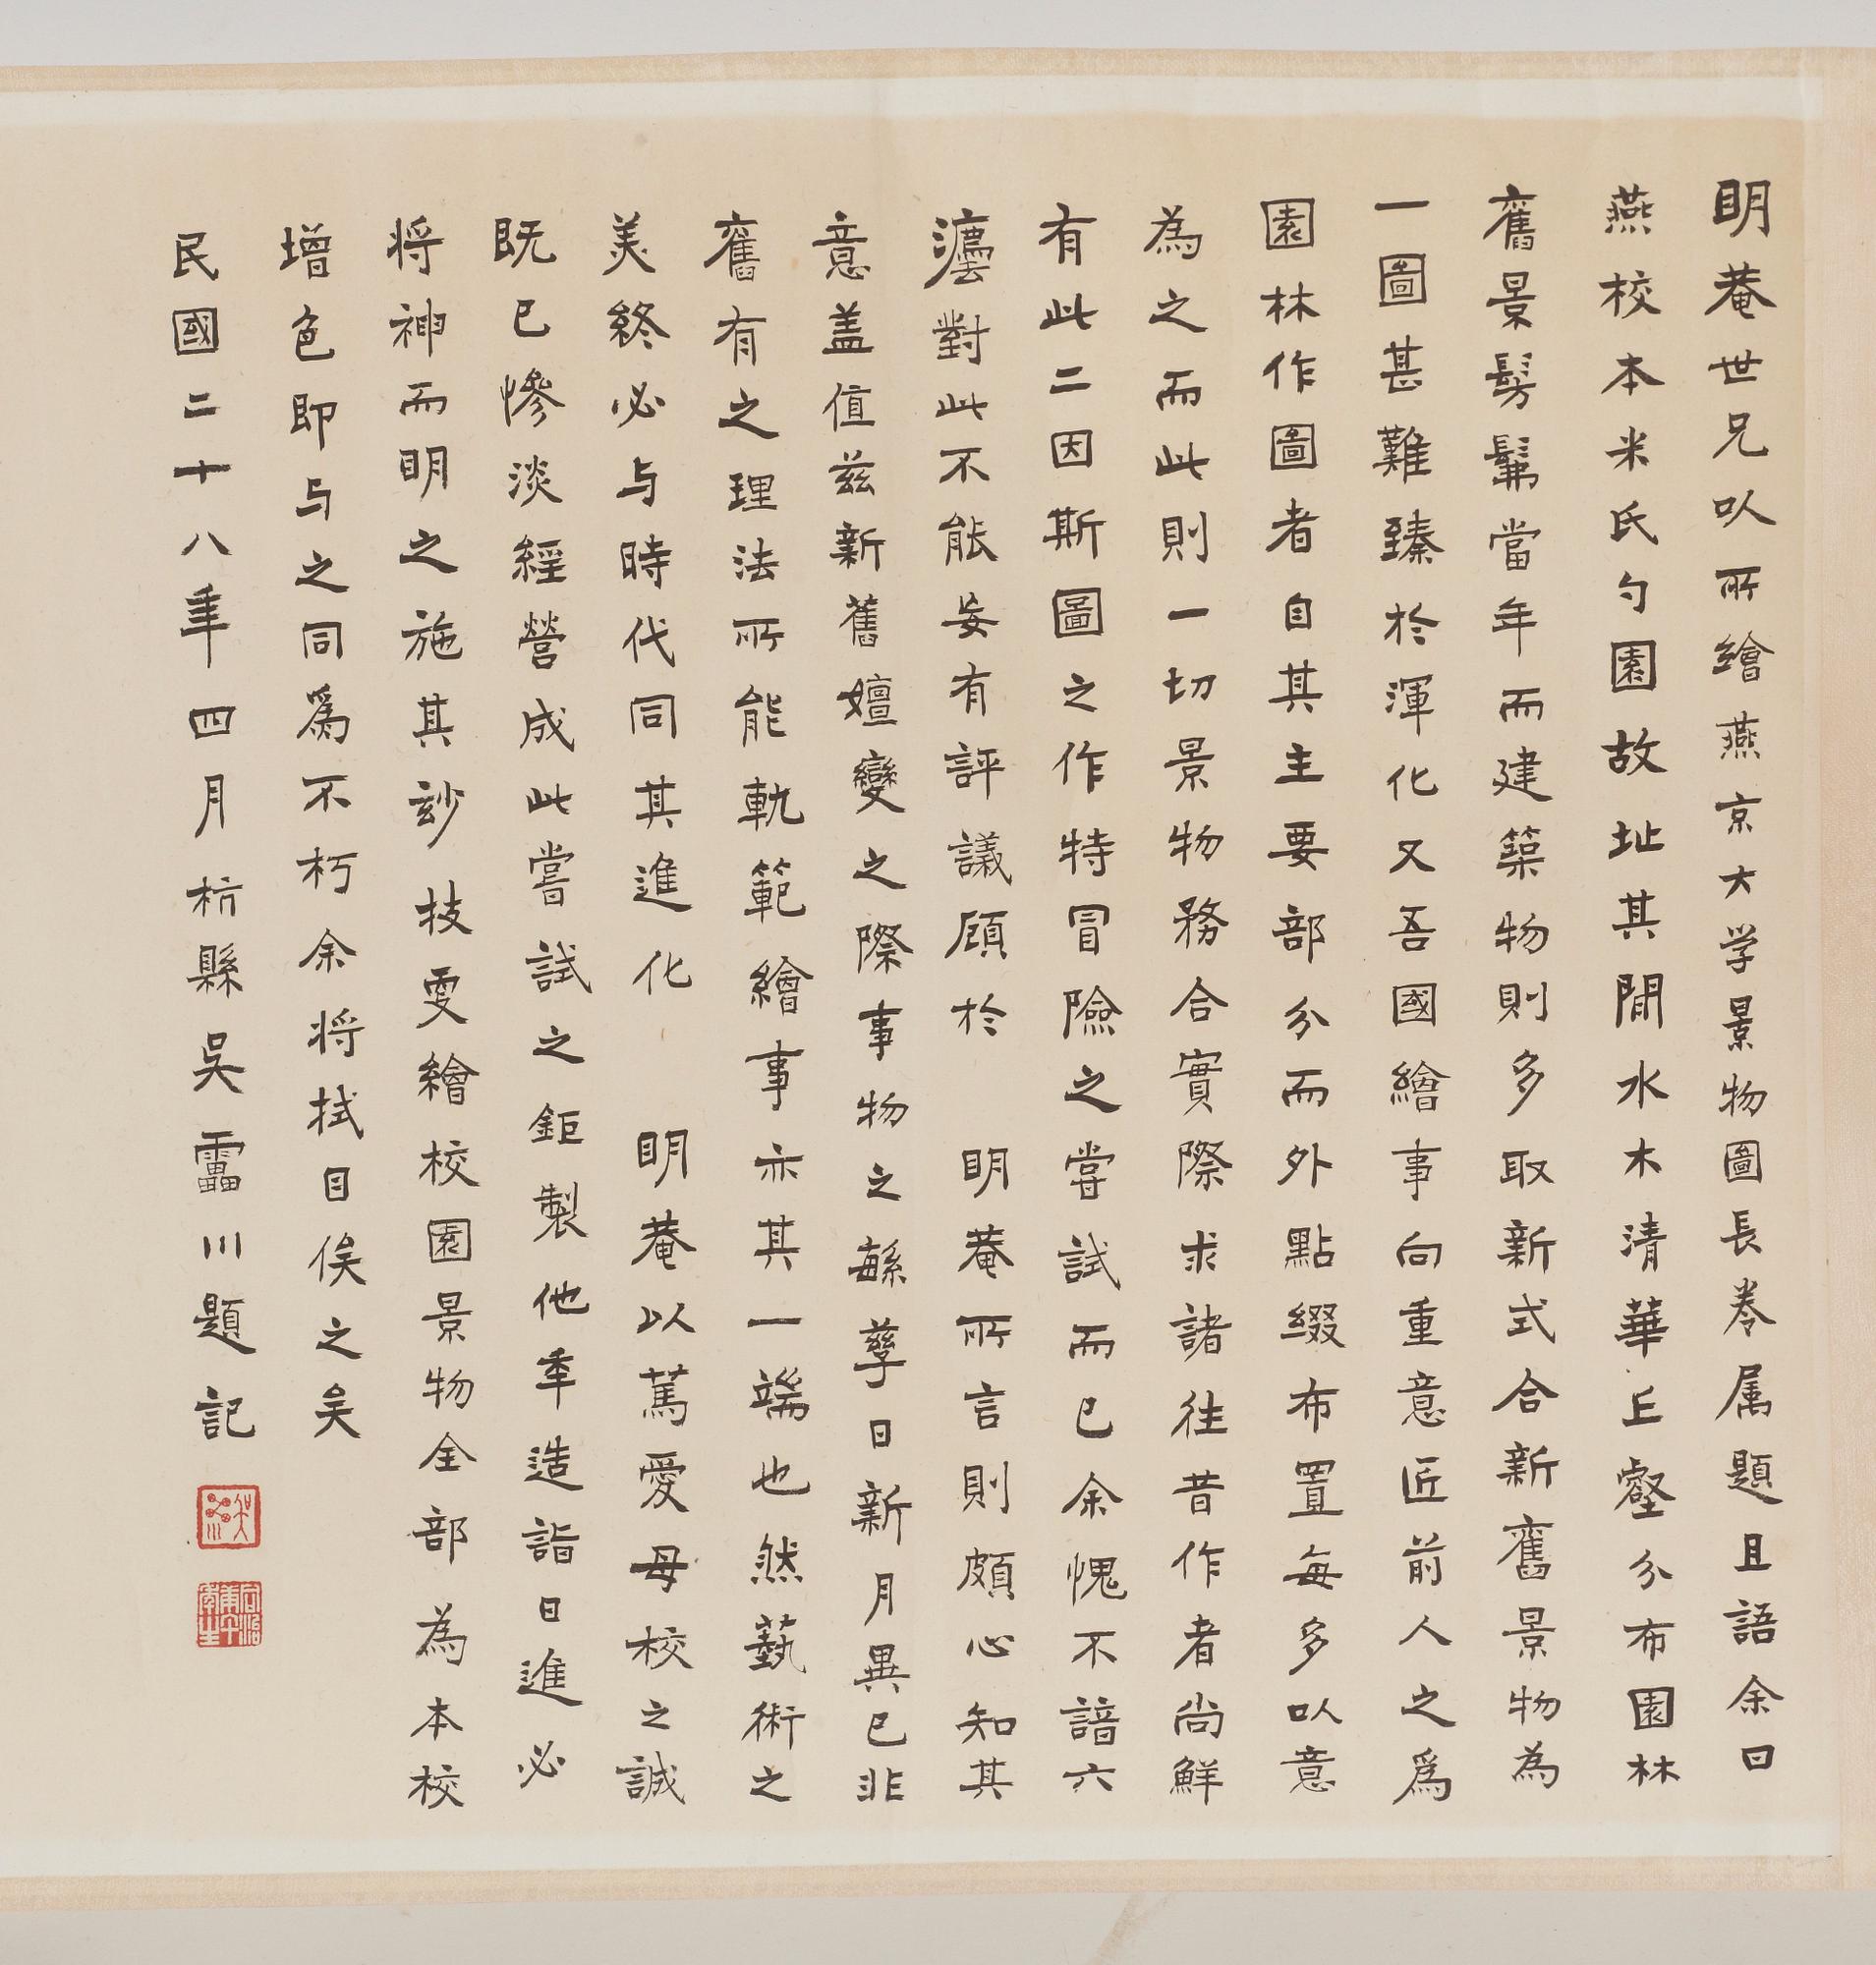 明菴世兄以所繪燕京大学景物圖長卷属題且語余曰
燕校本米氏勺園故址其間水木清華丘壑分布園林
舊景髣髴當年而建築物則多取新式合新舊景物為
一圖甚難臻於渾化又吾國繪事向重意匠前人之爲
園林作圖者自其主要部分而外點綴布置每多以意
為之而此則一切景物務合實際求諸往昔作者尚鮮
有此二因斯圖之作特冒險之嘗試而已余愧不諳六
灋對此不能妄有評議顧於 明菴所言則頗心知其
意盖值兹新舊嬗變之際事物之繇孳日新月異已非
舊有之理法所能軌範繪事亦其一端也然藝術之
美終必与時代同其進化 明菴以篤愛母校之誠
既已慘淡經營成此嘗試之鉅製他年造詣日進必
将神而明之施其玅技更繪校園景物全部為本校
增色即与之同爲不朽余将拭目俟之矣
民國二十八年四月杭縣吳靁川題記